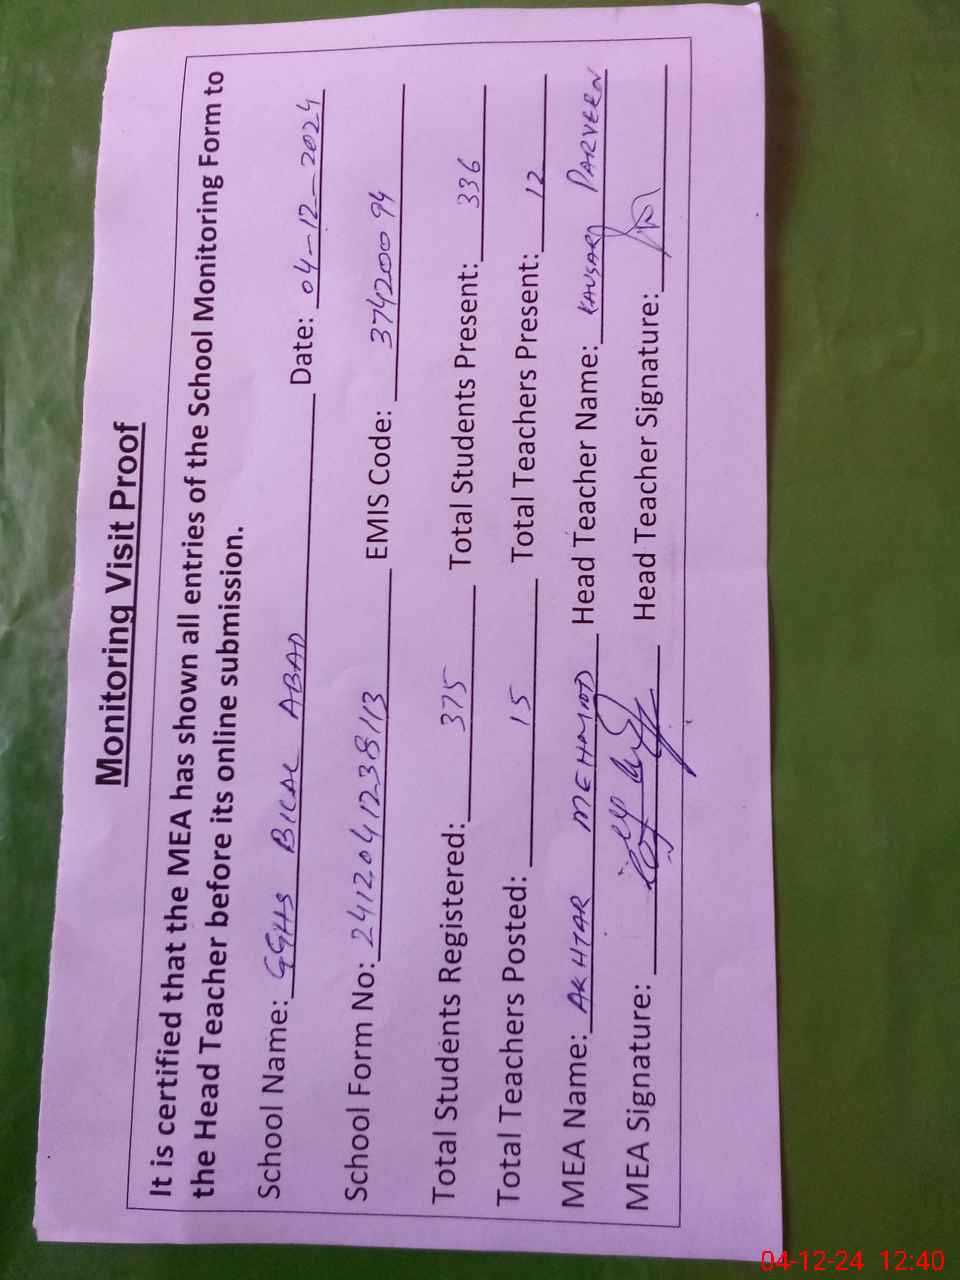 Monitoring Visit Proof
It is certified that the MEA has shown all entries of the School Monitoring Form to
the Head Teacher before its online submission.
School Name: GGHS BILAL ABAD Date: 04-12-2024
School Form No: 2412041238113 EMIS Code: 37420094
Total Students Registered: 375 Total Students Present: 336
Total Teachers Posted: 15 Total Teachers Present: 12
MEA Name: AKHTAR MEHMOOD Head Teacher Name: KAUSAR PARVEEN
MEA Signature: Head Teacher Signature:
04-12-24 12:40